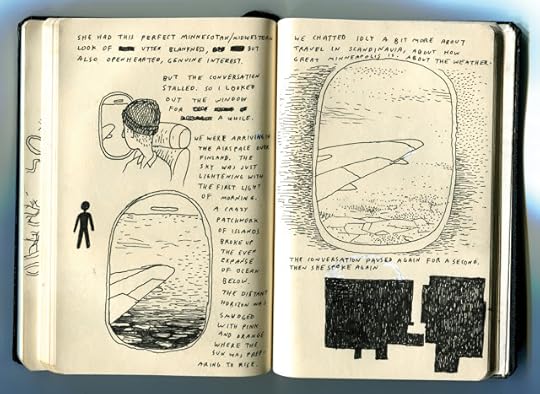 SHE HAD THIS PERFECT MINNESOTAN/MIDWESTERN
LOOK OF UTTER BLANKNESS, BUT
ALSO OPENHEARTED, GENUINE INTEREST.
BUT THE CONVERSATION
STALLED. SO I LOOKED
OUT THE WINDOW
FOR
A WHILE.
WE WERE ARRIVING IN
THE AIRSPACE OVER
FINLAND. THE
SKY WAS JUST
LIGHTENING WITH
THE FIRST LIGHT
OF MORNING.
A CRAZY
PATCHWORK
OF ISLANDS
BROKE UP
THE EVEN
EXPANSE
OF OCEAN
BELOW.
THE DISTANT
HORIZON WAS
SMUDGED
WITH PINK
AND ORANGE
WHERE THE
SUN WAS PREP
ARING TO RISE.
WE CHATTED IDLY A BIT MORE ABOUT
TRAVEL IN SCANDINAVIA, ABOUT HOW
GREAT MINNEAPOLIS IS. ABOUT THE WEATHER.
THE CONVERSATION PAUSED AGAIN FOR A SECOND,
THEN SHE SPOKE AGAIN